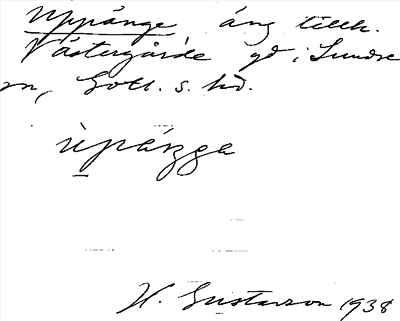 Uppänge äng tillh.
Västergårde gd i Sundre
sn, Gotl. s. hd.
ùpäŋgə
H. Gustavson 1938